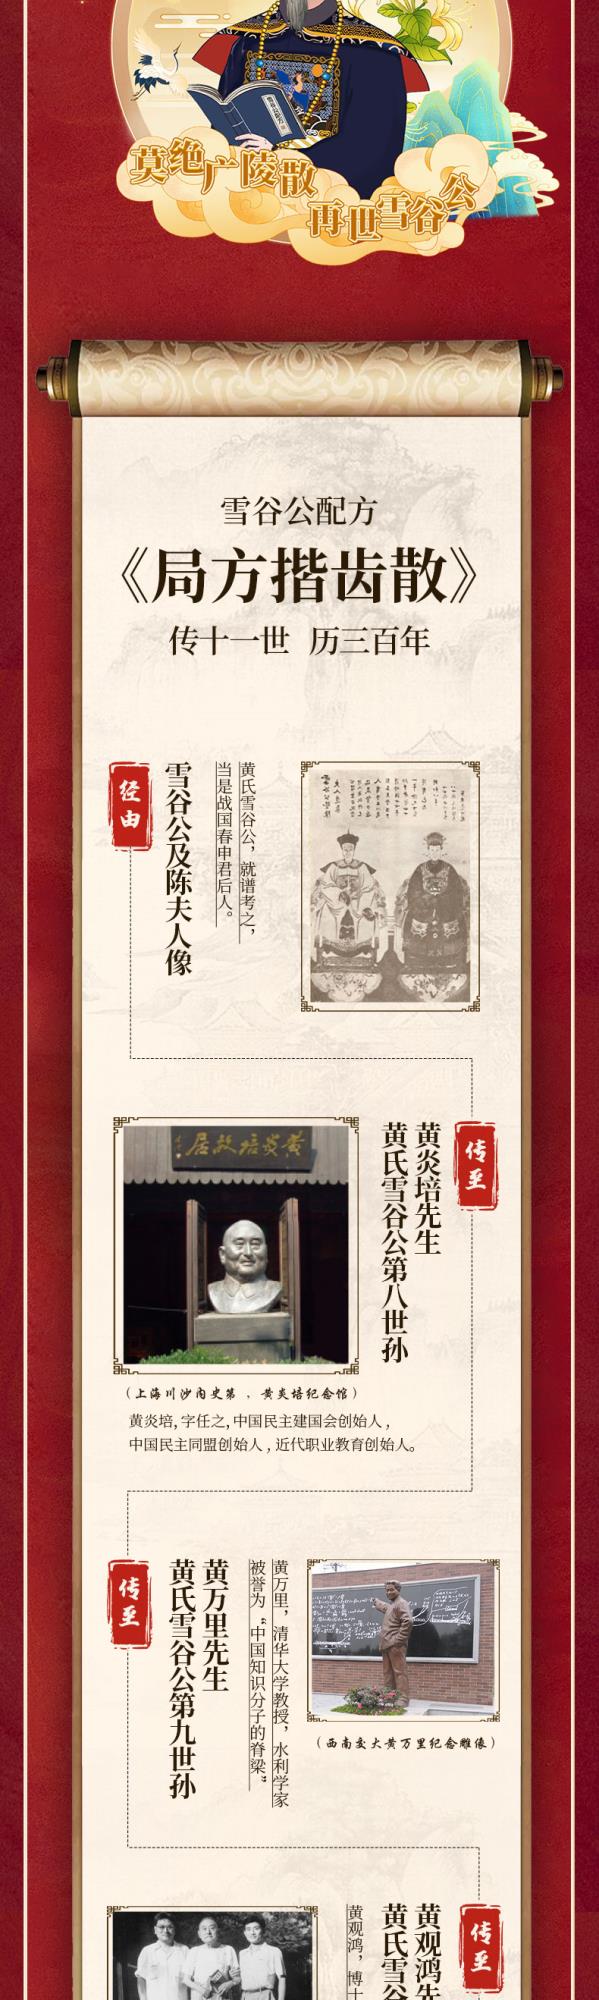 雪谷公配方
莫绝广陵散
再世雪谷公
雪谷公配方
《局方揩齿散》
传十一世 历三百年
经由
雪谷公及陈夫人像
黄氏雪谷公，就谱考之，
当是战国春申君后人。
传至
黄炎培先生
黄氏雪谷公第八世孙
黄炎培故居
（上海川沙内史第 、黄炎培纪念馆）
黄炎培, 字任之, 中国民主建国会创始人 ,
中国民主同盟创始人 , 近代职业教育创始人。
传至
黄万里先生
黄氏雪谷公第九世孙
黄万里，清华大学教授，水利学家
被誉为“中国知识分子的脊梁”
（西南交大黄万里纪念雕像）
传至
黄观鸿先
黄氏雪谷
黄观鸿，博士